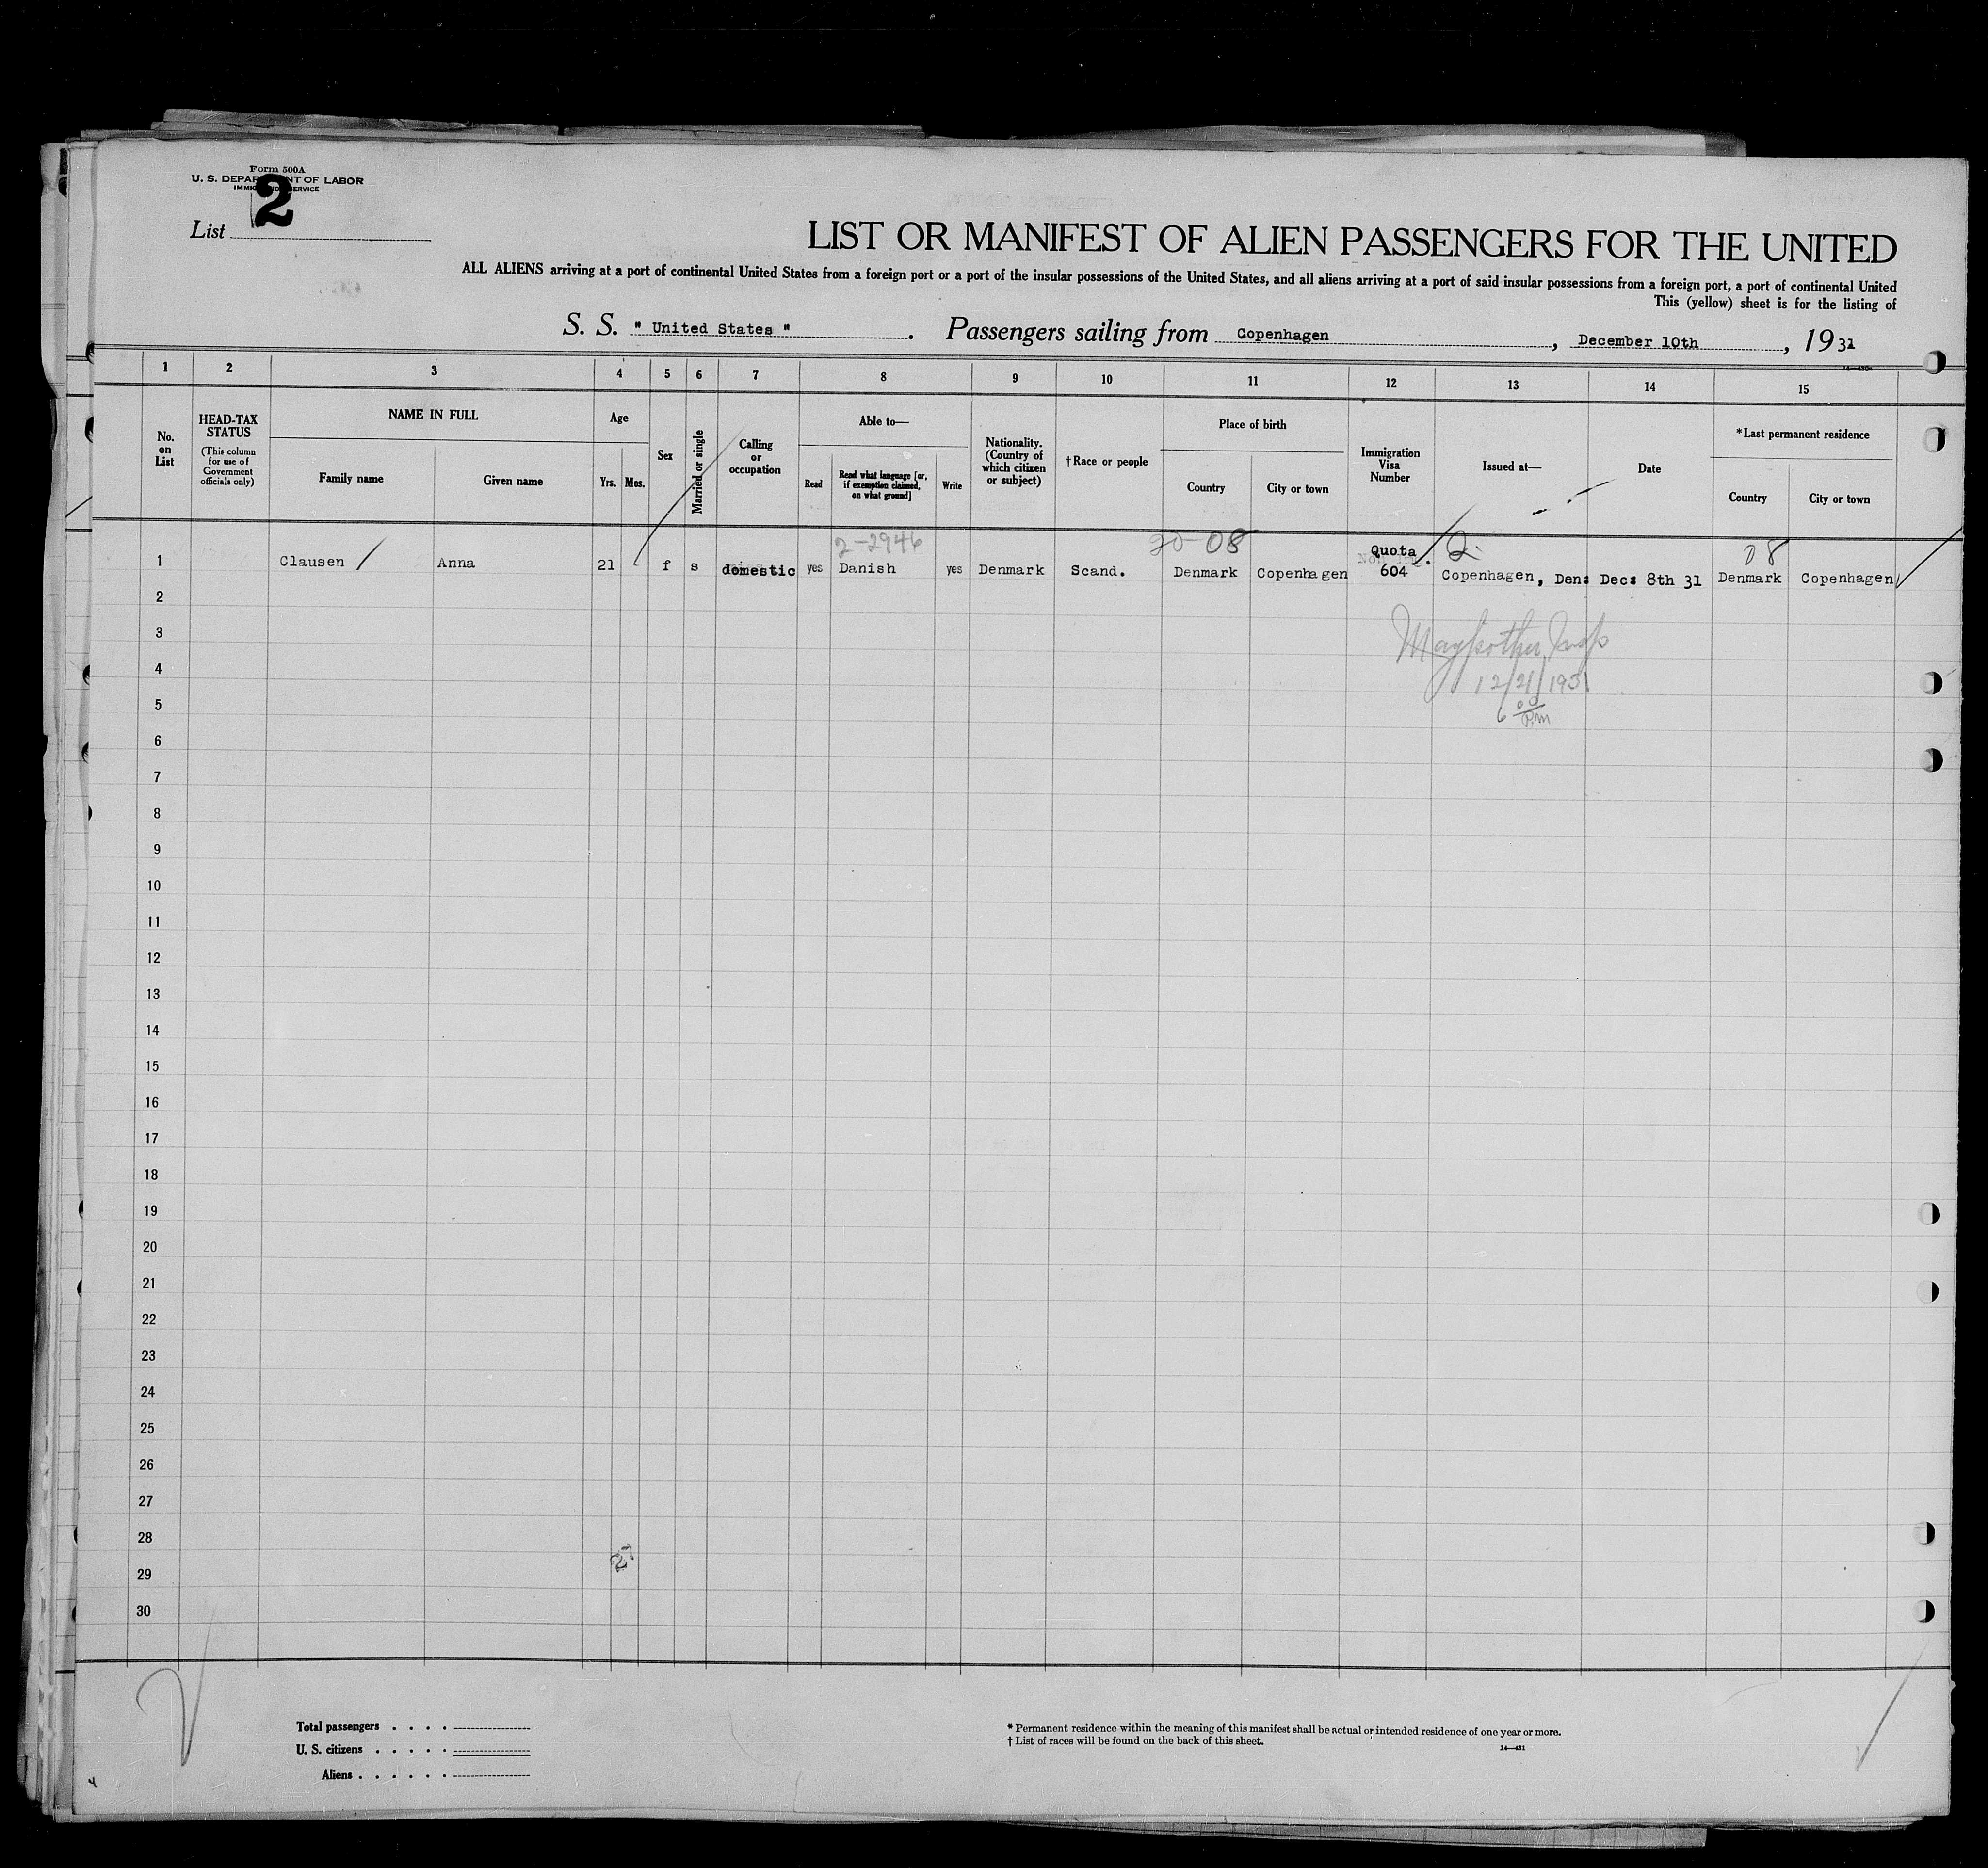 Form 500A
U. S. DEPARTMENT OF LABOR
IMMIGRATION SERVICE
List 2
LIST OR MANIFEST OF ALIEN PASSENGERS FOR THE UNITED
ALL ALIENS arriving at a port of continental United States from a foreign port or a port of the insular possessions of the United States, and all aliens arriving at a port of said insular possessions from a foreign port, a port of continental United
This (yellow) sheet is for the listing of
S. S. " United States " . Passengers sailing from Copenhagen , December 10th , 19 31
1 2 3 4 5 6 7 8 9 10 11 12 13 14 15
No. on List
HEAD-TAX STATUS
(This column for use of Government officials only)
NAME IN FULL
Family name Given name
Age
Yrs. Mos.
Sex
Married or single
Calling or occupation
Able to—
Read
Read what language [or, if exemption claimed, on what ground]
Write
Nationality. (Country of which citizen or subject)
†Race or people
Place of birth
Country City or town
Immigration Visa Number
Issued at—
Date
*Last permanent residence
Country City or town
2-2946 20-08 Quota Q 08
1 Clausen / Anna 21 f s domestic yes Danish yes Denmark Scand. Denmark Copenhagen 604 Copenhagen, Den: Dec: 8th 31 Denmark Copenhagen
2
3
4
12/21/1931
5
6 00 P.m
6
7
8
9
10
11
12
13
14
15
16
17
18
19
20
21
22
23
24
25
26
27
28
29
30
Total passengers . . . .
U. S. citizens . . . . .
Aliens . . . . . .
* Permanent residence within the meaning of this manifest shall be actual or intended residence of one year or more.
† List of races will be found on the back of this sheet.
14—431